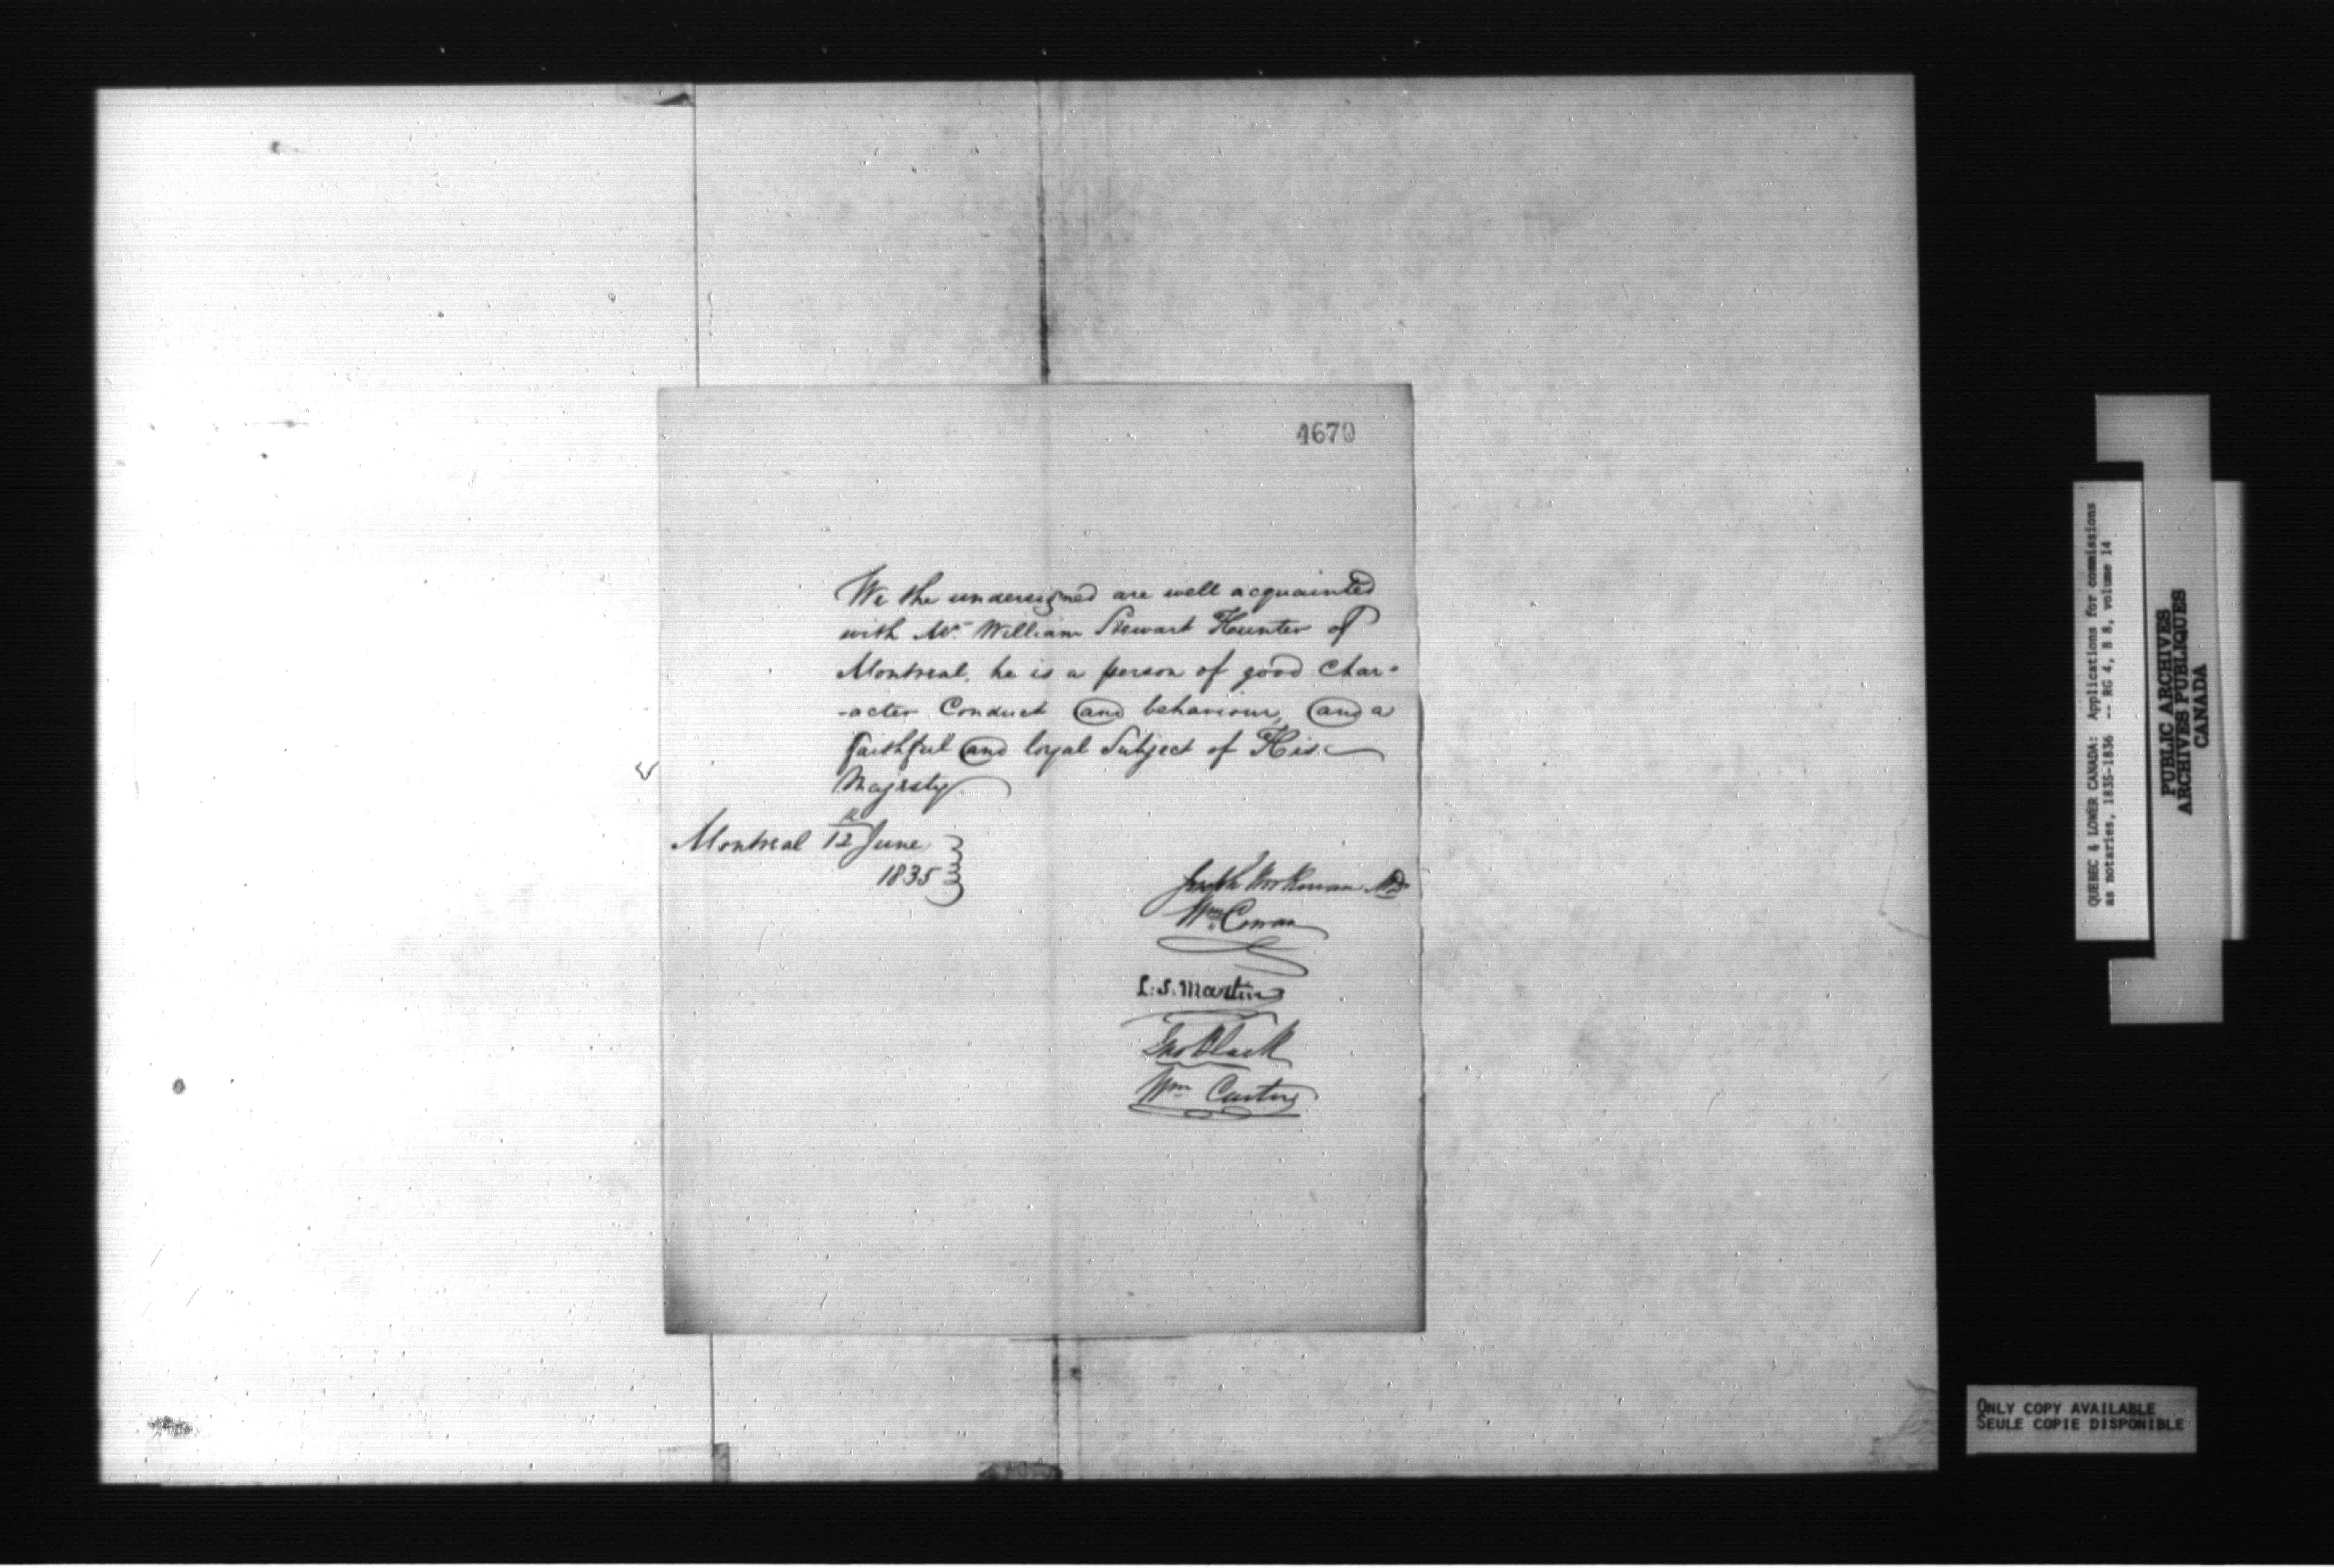 4670
We the undersigned are well acquainted
with Mr. William Stewart Hunter of
Montreal, he is a person of good char-
-acter Conduct and behaviour, and a
faithful and loyal Subject of His
Majesty.
Montreal 12th June
1835
Joseph Workman MD
Wm. Cowan
L. S. Martin
Jno Black
Wm
QUEBEC & LOWER CANADA: Applications for commissions
as notaries, 1835-1836 -- RG 4, B 8, volume 14
PUBLIC ARCHIVES
ARCHIVES PUBLIQUES
CANADA
ONLY COPY AVAILABLE
SEULE COPIE DISPONIBLE